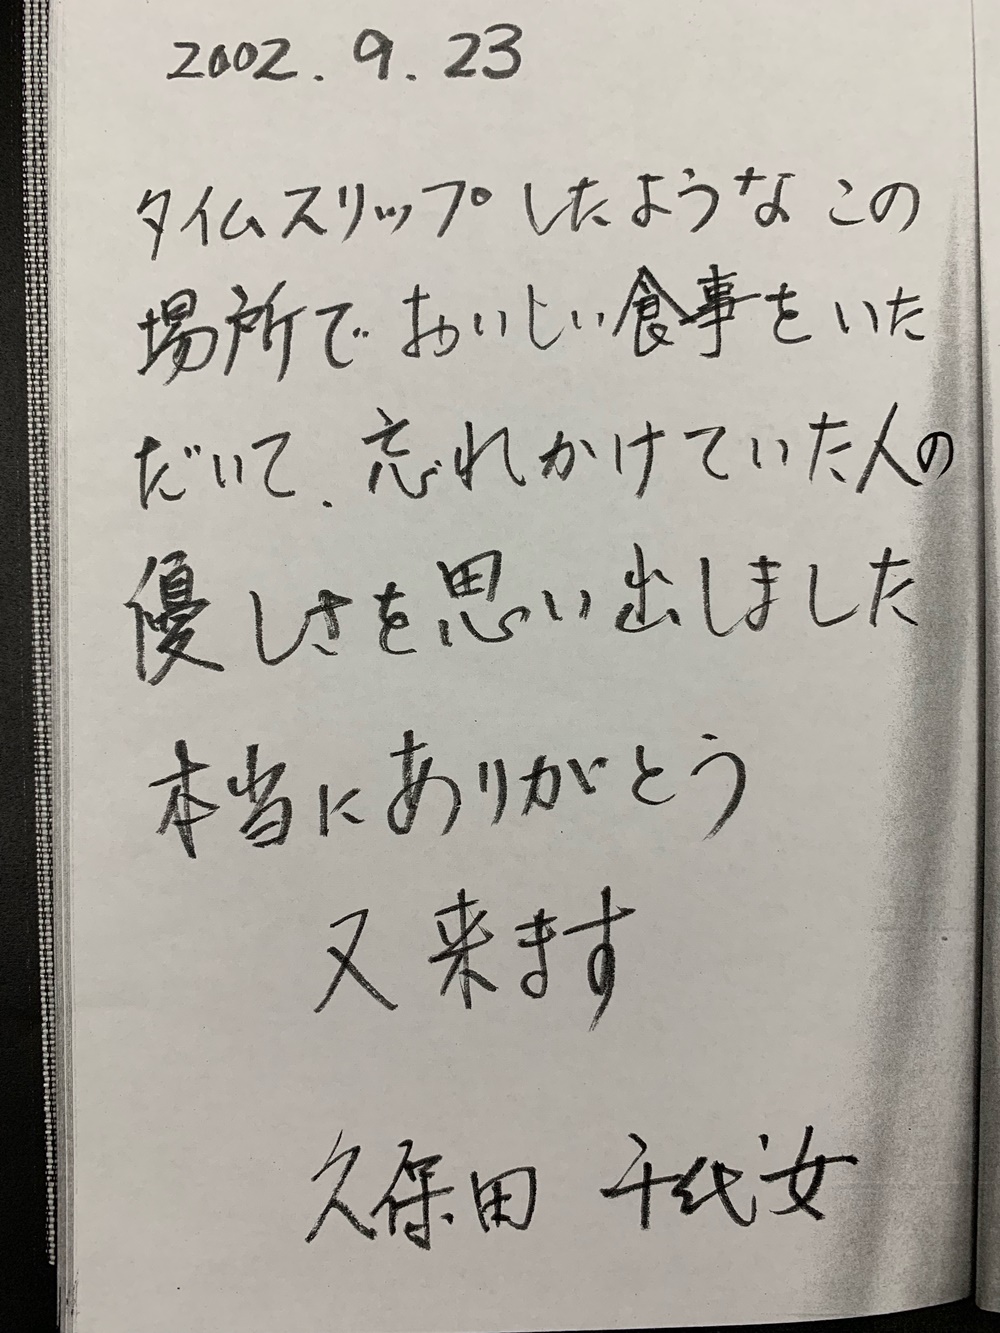 2002.9.23
タイムスリップしたようなこの
場所でおいしい食事をいた
だいて、忘れかけていた人の
優しさを思い出しました
本当にありがとう
又来ます
久保田 千代女